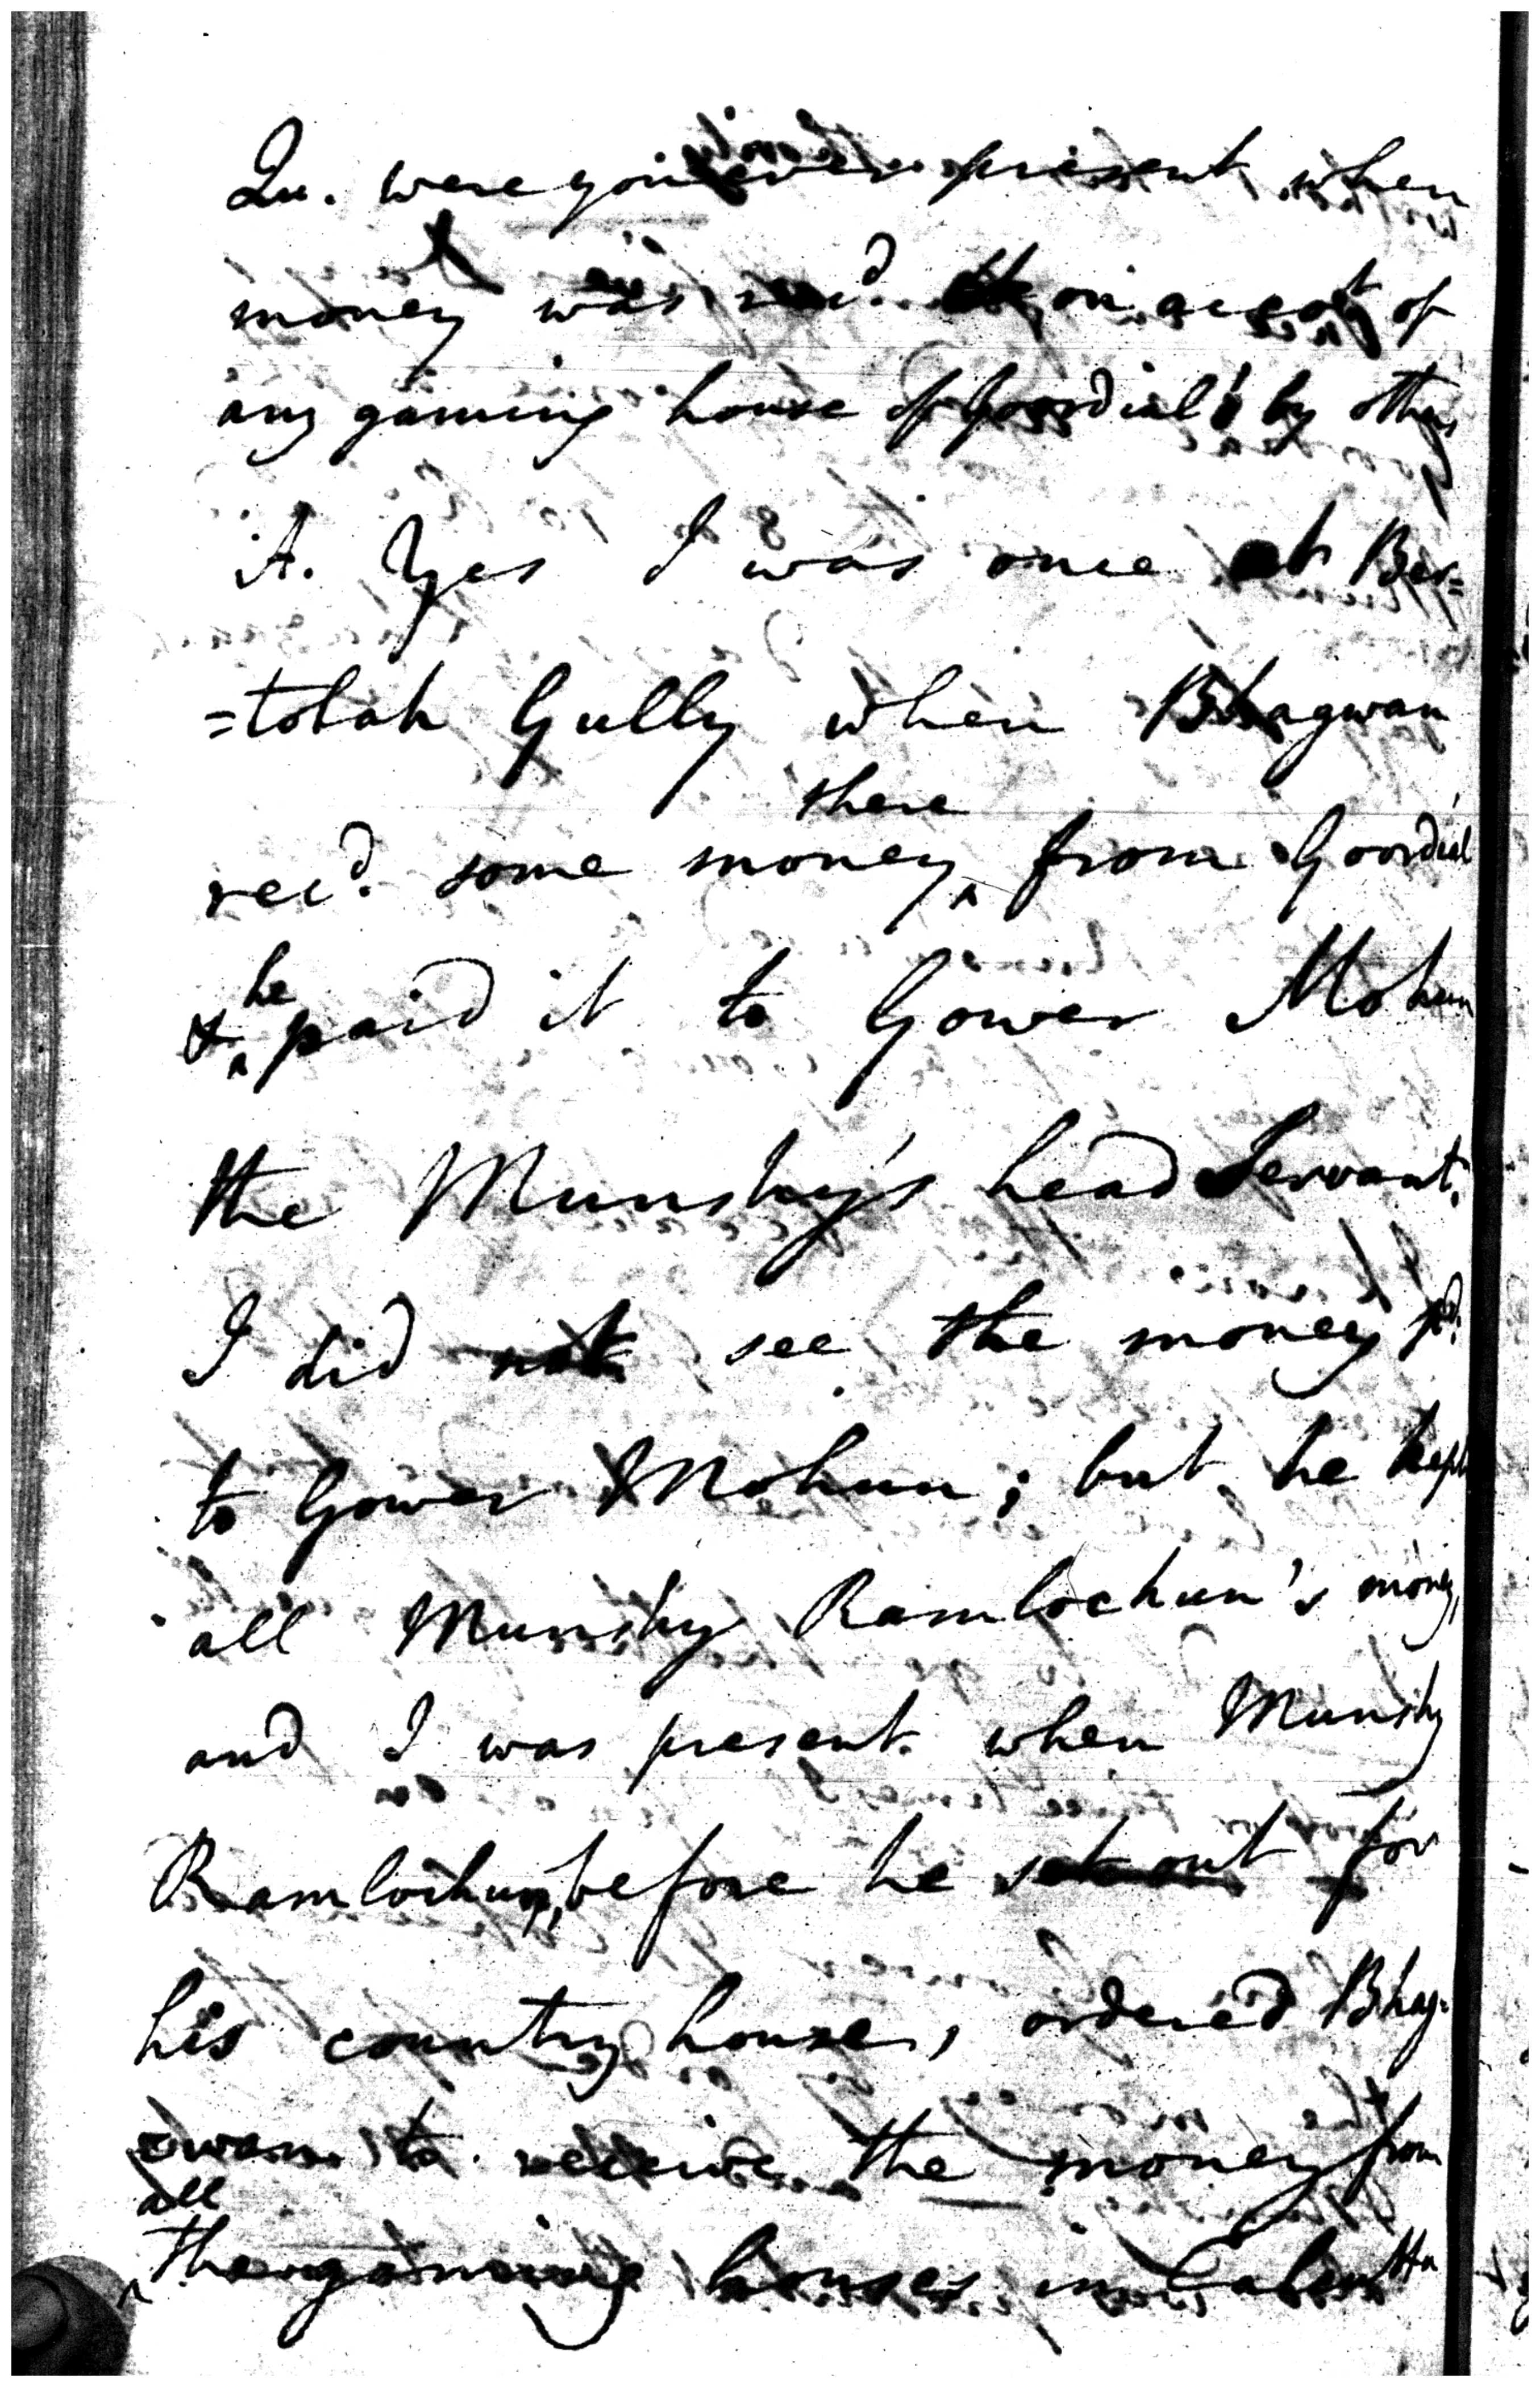 Qu. were you ever present when
money was rec.d on accot of
any gaming house of Goordial's by others
A. Yes I was once at Bar=
=tolah Gully when Bhagwan
there
rec.d some money ^ from Goordial
he
& ^ paid it to Gower Mohun
the Munshy's head Servant.
I did not see the money pd.
to Gower Mohun; but he kept
all Munshy Ramlochun's money,
and I was present when Munshy
Ramlochun, before he set out for
his country house, ordered Bhag-
wan to receive the money from
all
^ the gaming houses in Calcutta